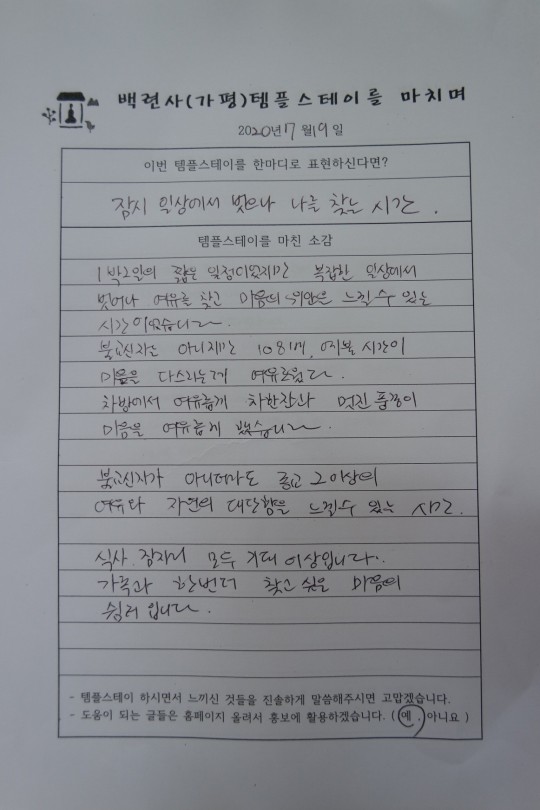 백련사(가평)템플스테이를 마치며
2020년 7월 19일
이번 템플스테이를 한마디로 표현하신다면?
잠시 일상에서 벗으나 나를 찾는 시간.
템플스테이를 마친 소감
1박2일의 짧은 일정이였지만 복잡한 일상에서
벗어나 여유를 찾고 마음의 위안을 느낄수 있는
시간이였습니다.
불교신자는 아니지만 108배, 예불 시간이
마음을 다스리는게 여유로웠다.
차방에서 여유롭게 차한잔과 멋진 풍경이
마음을 여유롭게 했습니다.
불교신자가 아니더라도 종교 그 이상의
여유와 자연의 대단함을 느낄수 있는 시간.
식사, 잠자리 모두 기대 이상입니다.
가족과 한번더 찾고 싶은 마음의
쉼터 입니다.
- 템플스테이 하시면서 느끼신 것들을 진솔하게 말씀해주시면 고맙겠습니다.
- 도움이 되는 글들은 홈페이지 올려서 홍보에 활용하겠습니다. ( 예 , 아니요 )